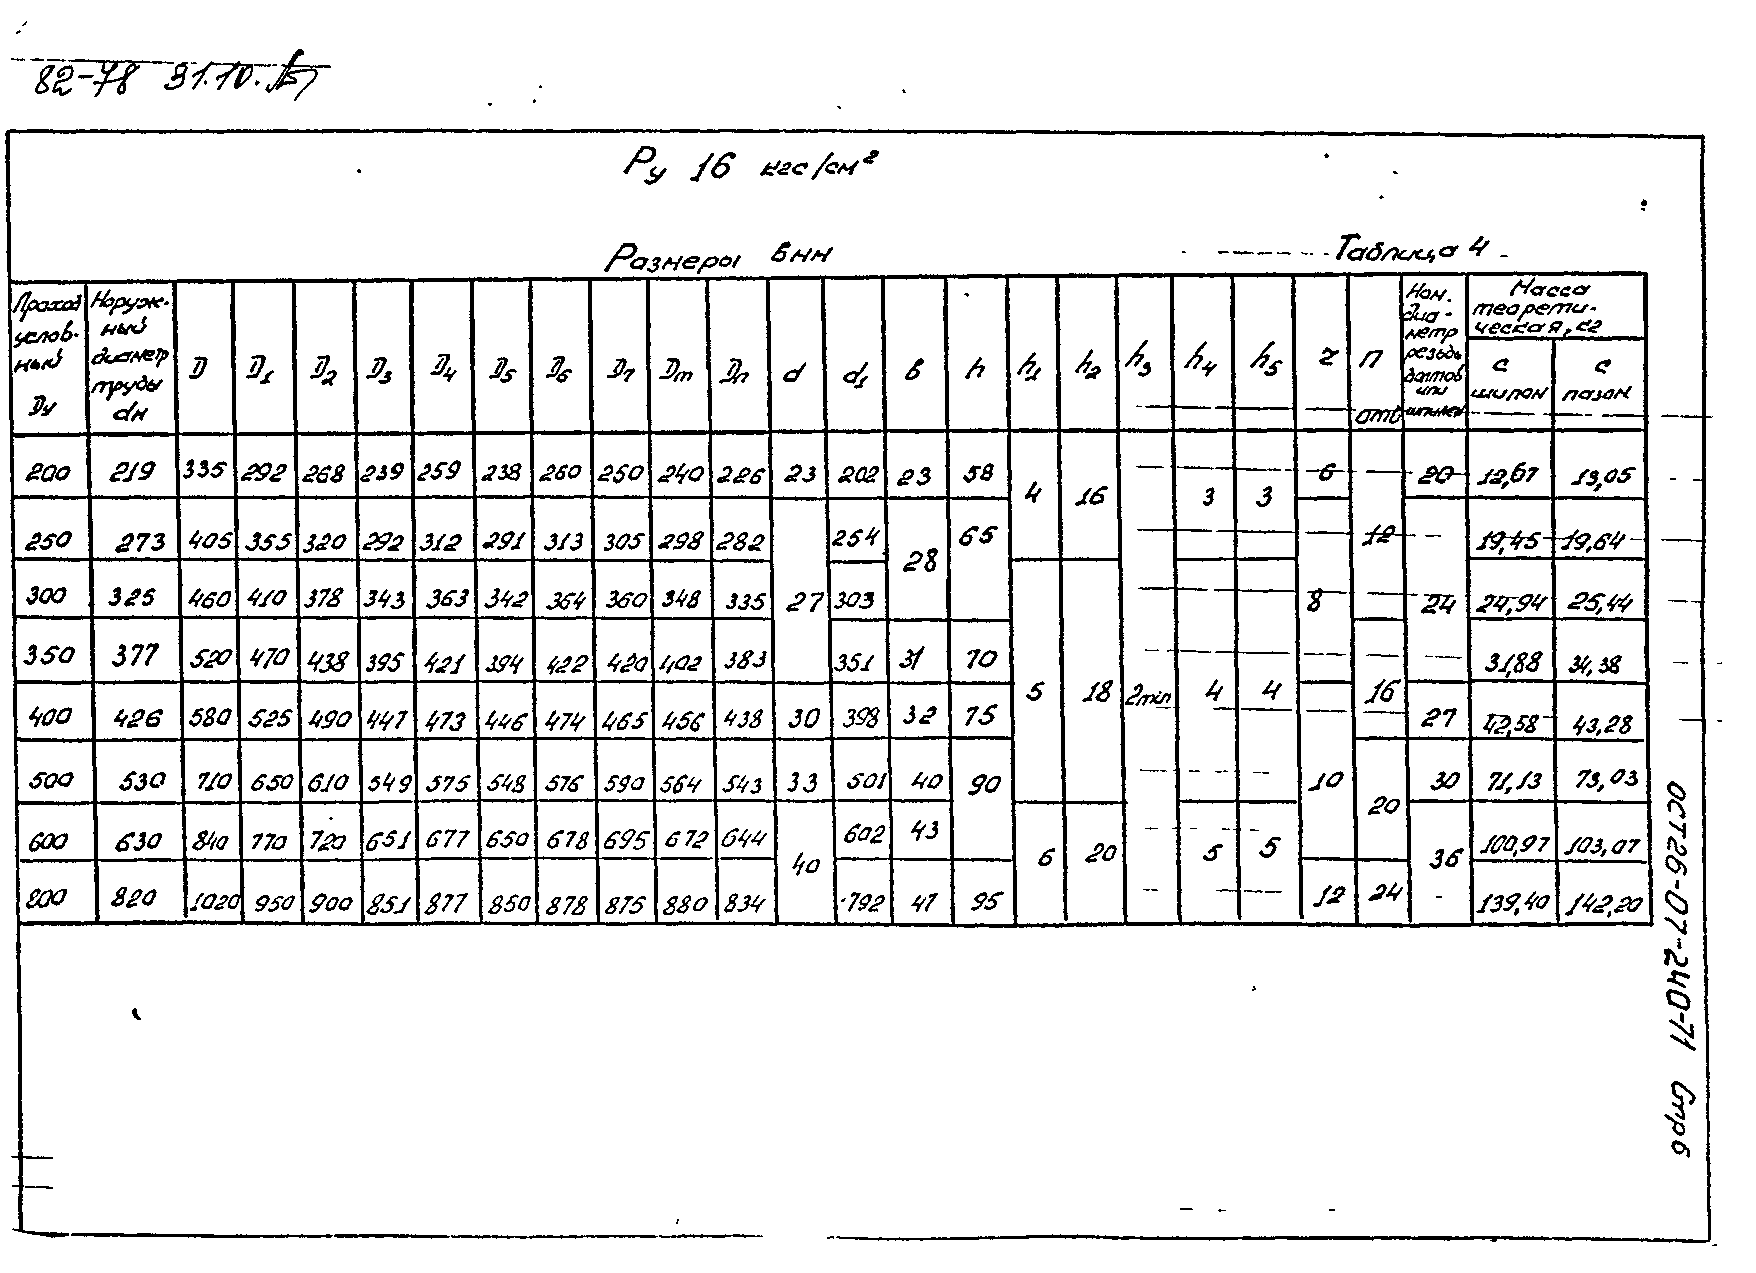 82-78 31.10.
Ру 16 кгс/см²
Размеры в мм
Таблица 4
Проход условный Ду | Наружный диаметр трубы dн | D | D1 | D2 | D3 | D4 | D5 | D6 | D7 | Dm | Dn | d | d1 | в | h | h1 | h2 | h3 | h4 | h5 | z | n отв | Ном. диаметр резьбы болтов или шпилек | Масса теоретическая, кг
с шипом | с пазом
200 219 335 292 268 239 259 238 260 250 240 226 23 202 23 58 4 16 3 3 6 12 20 12,67 13,05
250 273 405 355 320 292 312 291 313 305 298 282 254 28 65 19,45 19,64
300 325 460 410 378 343 363 342 364 360 348 335 27 303 8 24 24,94 25,44
350 377 520 470 438 395 421 394 422 420 402 383 351 31 70 5 18 2min 4 4 16 31,88 34,38
400 426 580 525 490 447 473 446 474 465 456 438 30 398 32 75 27 42,58 43,28
500 530 710 650 610 549 575 548 576 590 564 543 33 501 40 90 10 20 30 71,13 73,03
600 630 840 770 720 651 677 650 678 695 672 644 40 602 43 6 20 5 5 36 100,97 103,07
800 820 1020 950 900 851 877 850 878 875 880 834 792 47 95 12 24 139,40 142,20
ОСТ26-07-240-71 Стр 6